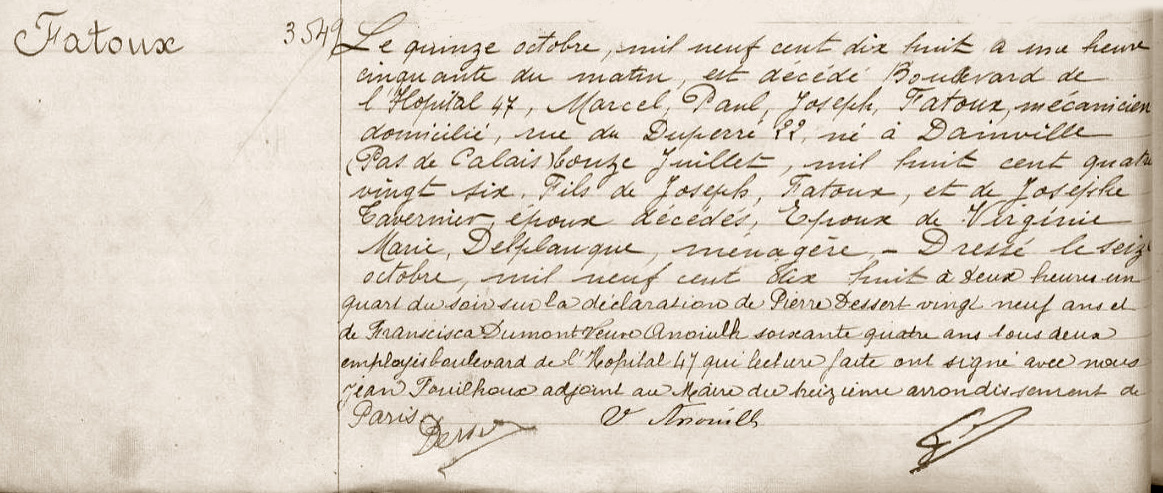 Fatoux
3549
Le quinze octobre, mil neuf cent dix huit à une heure
cinquante du matin, est décédé Boulevard de
l'Hopital 47, Marcel, Paul, Joseph, Fatoux, mécanicien
domicilié, rue du Duperré 22, né à Dainville
(Pas de Calais) le onze Juillet, mil huit cent quatre
vingt six, Fils de Joseph, Fatoux, et de Josèphe
Tavernier, époux décédés, Epoux de Virginie
Marie, Delplanque, ménagère, _ Dressé le seize
octobre, mil neuf cent dix huit à deux heures un
quart du soir sur la déclaration de Pierre Dessert vingt neuf ans et
de Francisca Dumont Veuve Anouilh soixante quatre ans tous deux
employés boulevard de l'Hopital 47 qui lecture faite ont signé avec nous
Jean adjoint au Maire du treizième arrondissement de
Paris.
V Anouilh